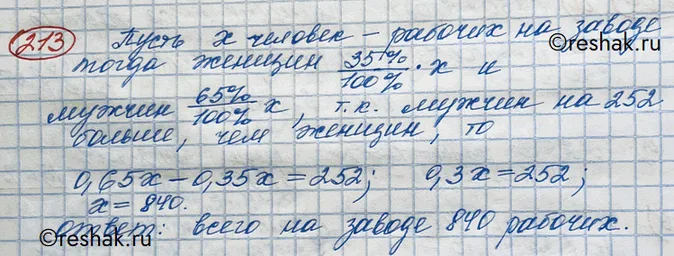 ©reshak.ru
213 Пусть x человек – рабочих на заводе
тогда женщин 35%/100% · x и
мужчин 65%/100% x, т.к. мужчин на 252
больше, чем женщин, то
0,65x – 0,35x = 252; 0,3x = 252;
x = 840.
ответ: всего на заводе 840 рабочих.
©reshak.ru